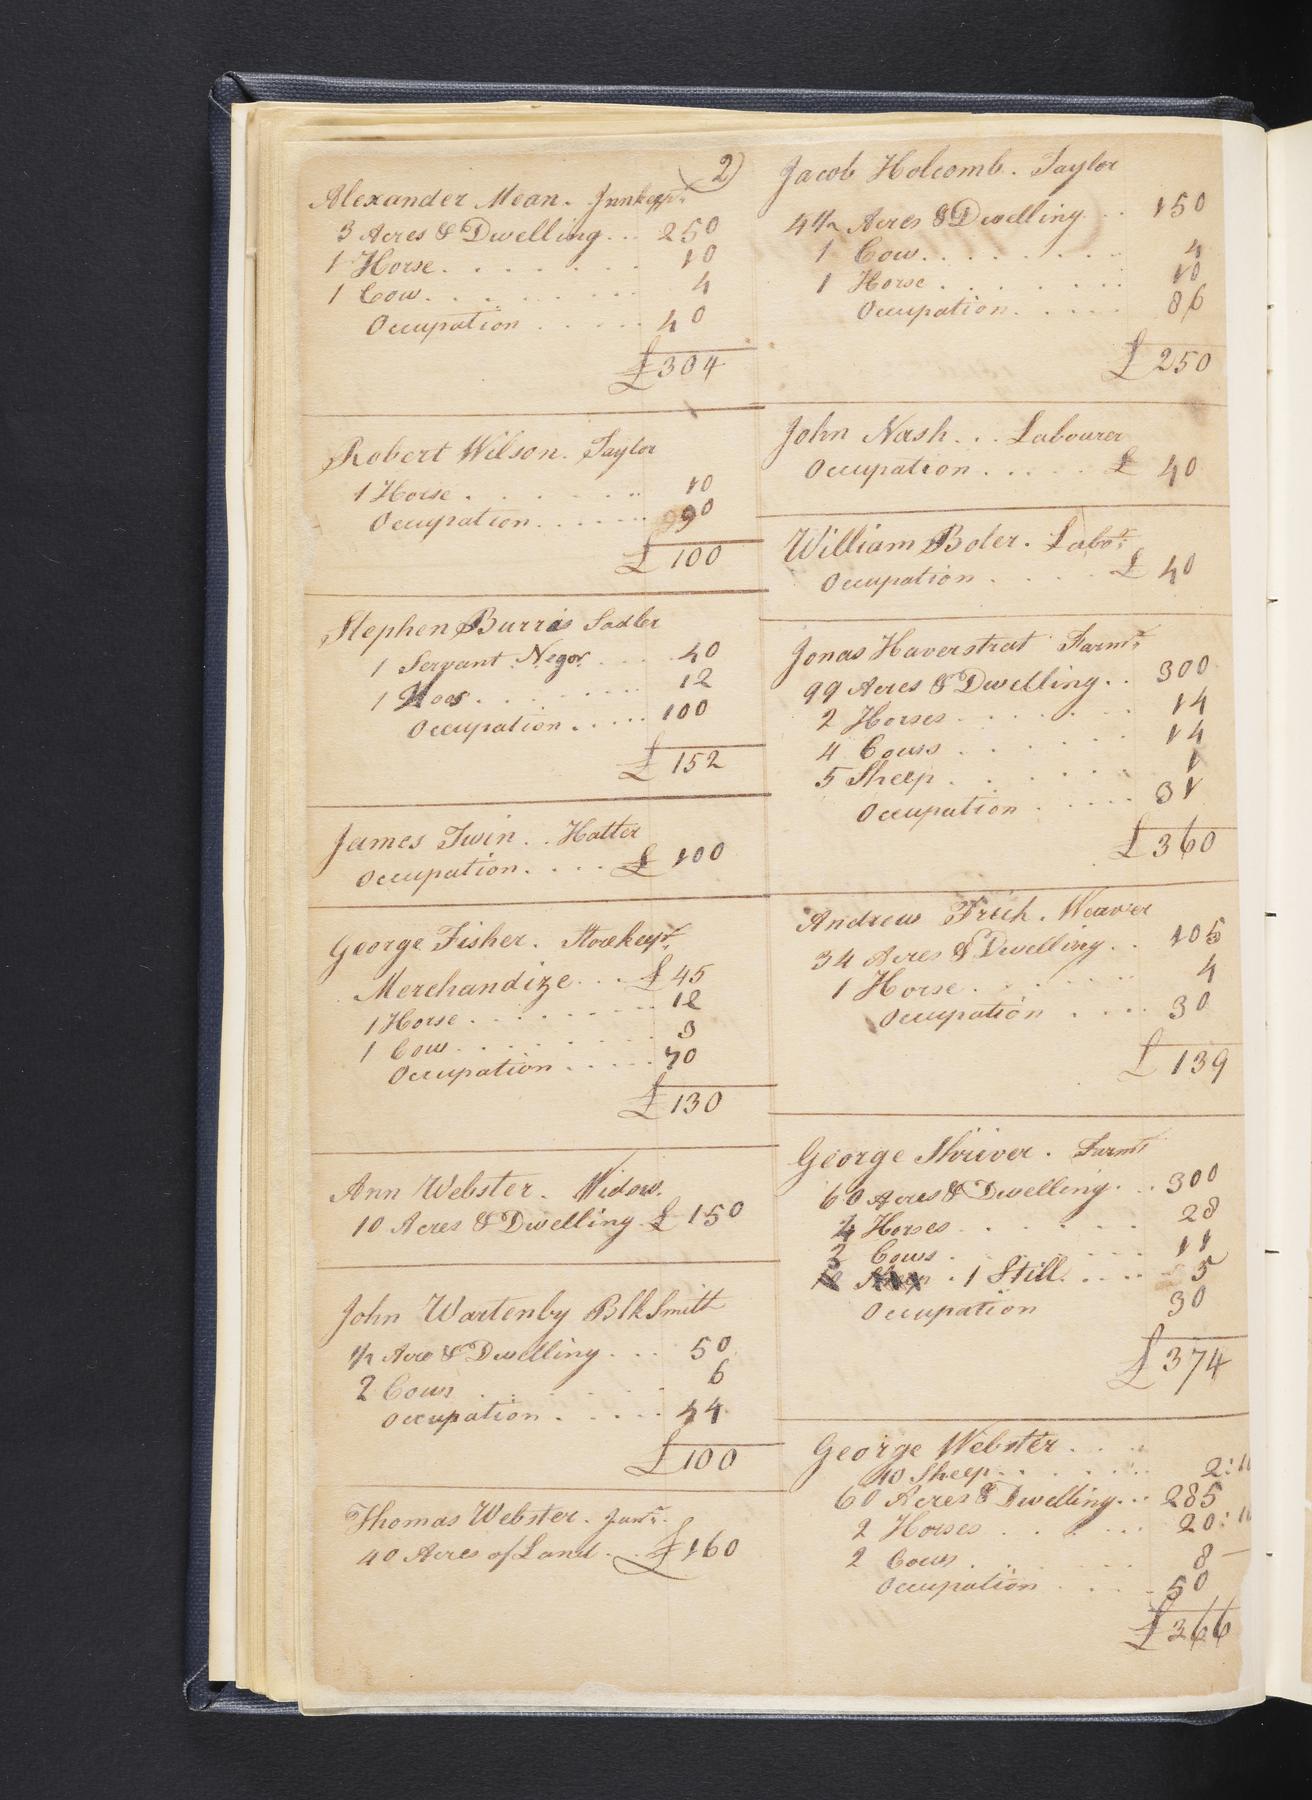 2)
Alexander Mean. Innkeepr.
3 Acres & Dwelling... 250
1 Horse. . . . . . . 10
1 Cow. . . . . . . . 4
Occupation . . . . . 40
£304
Robert Wilson. Taylor
1 Horse . . . . . . 10
Occupation. . . . . . 90
£ 100
Stephen Burris Sadler
1 Servant Negor . . . . 40
1 . . . . . . . 12
Occupation. . . . . . 100
£ 152
James Twin. . Hatter
Occupation. . . . £ 100
George Fisher. Storekepr.
Merchandize. . . £45
1 Horse. . . . . . . . 12
1 Cow. . . . . . . . . 3
Occupation . . . . . 70
£130
Ann Webster. Widow.
10 Acres & Dwelling. £ 150
John Wartenby Blk Smith
1/2 Acre & Dwelling . . . 50
2 Cows . . . . . . . 6
Occupation . . . . . 44
£100
Thomas Webster. Junr.
40 Acres of Land. . £160
Jacob Holcomb. Taylor
4 1/2 Acres & Dwelling. . . 150
1 Cow. . . . . . . . 4
1 Horse . . . . . . . 10
Occupation. . . . . 86
£ 250
John Nash. . . Labourer
Occupation . . . . . £ 40
William Boler. Labor.
Occupation . . . . £ 40
Jonas Haverstrat Farmr.
99 Acres & Dwelling. . 300
2 Horses . . . . . . 14
4 Cows . . . . . . 14
5 Sheep . . . . . . 1
Occupation . . . . . 31
£360
Andrew Frich. Weaver
34 Acres & Dwelling. . 105
1 Horse. . . . . . 4
Occupation . . . . 30
£ 139
George Shriver. Farmr
60 Acres & Dwelling. . . 300
4 Horses . . . . . . 28
2 Cows. . . . . . . 11
1 Still. . . . . 5
Occupation 30
£374
George Webster . . .
40 Sheep. . . . . . . 2:1
60 Acres & Dwelling... 285
2 Horses . . . . . . 20:1
2 Cows . . . . . . 8 —
Occupation . . . . 50
£366